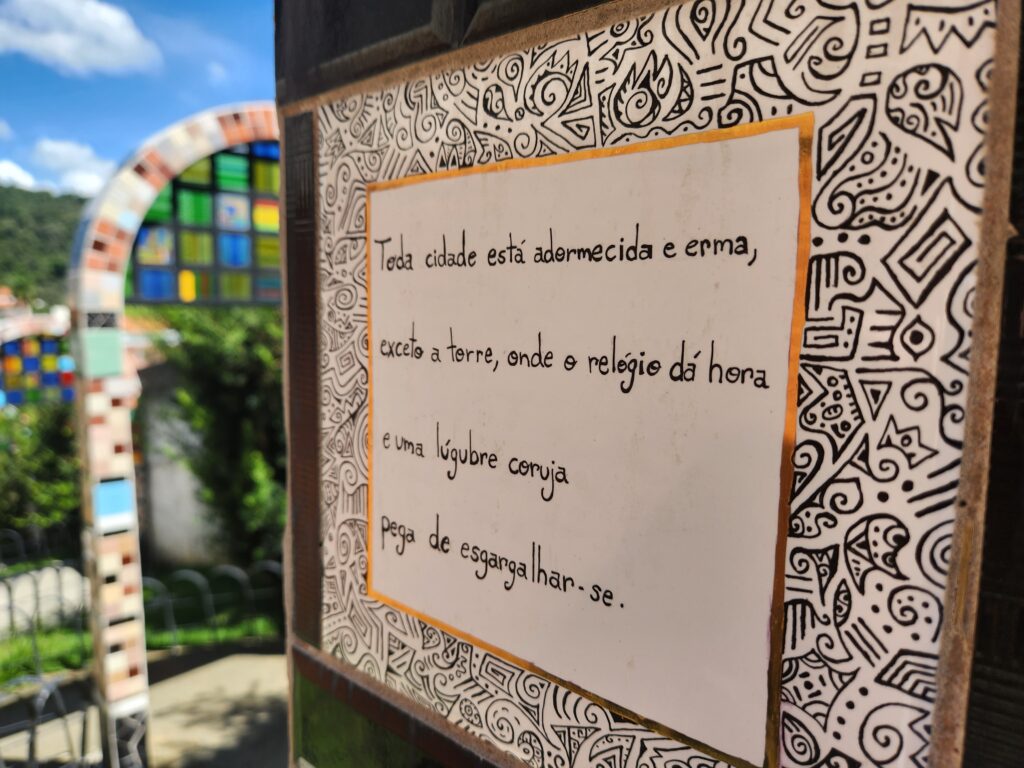 Toda cidade está adormecida e erma,
exceto a torre, onde o relógio dá hora
e uma lúgubre coruja
pega de esgargalhar-se.